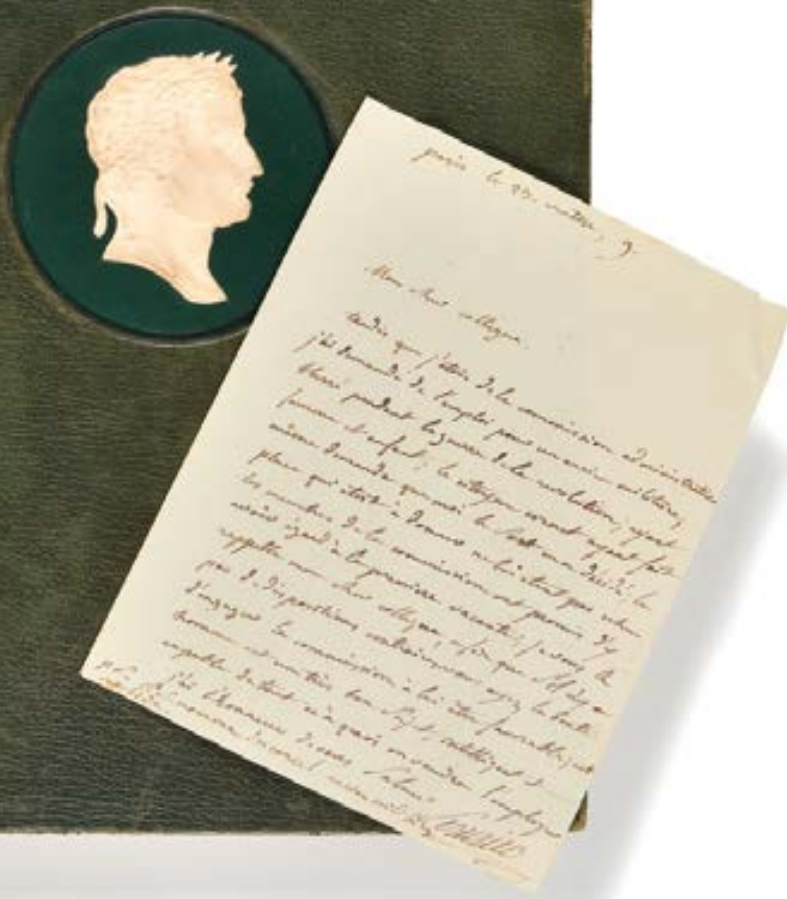 paris le 23 , 9.
Mon cher collegue.
tandis que j'étais de la commission administrative
j'ai demandé de l'emploi pour un ancien militaire,
blessé pendant la guerre de la revolution, ayant
femme et enfant; le citoyen ayant fait la
même demande que moi le sort en a decidé; la
place qui etoit à donner ne lui étant pas echue
les membres de la commission ont promis d'y
avoir égard à la premiere vacante; je vous le
rappelle mon cher collegue, afin que s'il n'y a
pas de dispositions contraires vous ayez la bonté
d'engager la commission à lui être favorable; cet
homme est un très bon sujet, intelligent et
capable de tout ce à quoi on voudra l'employer
j'ai l'honneur de vous saluer